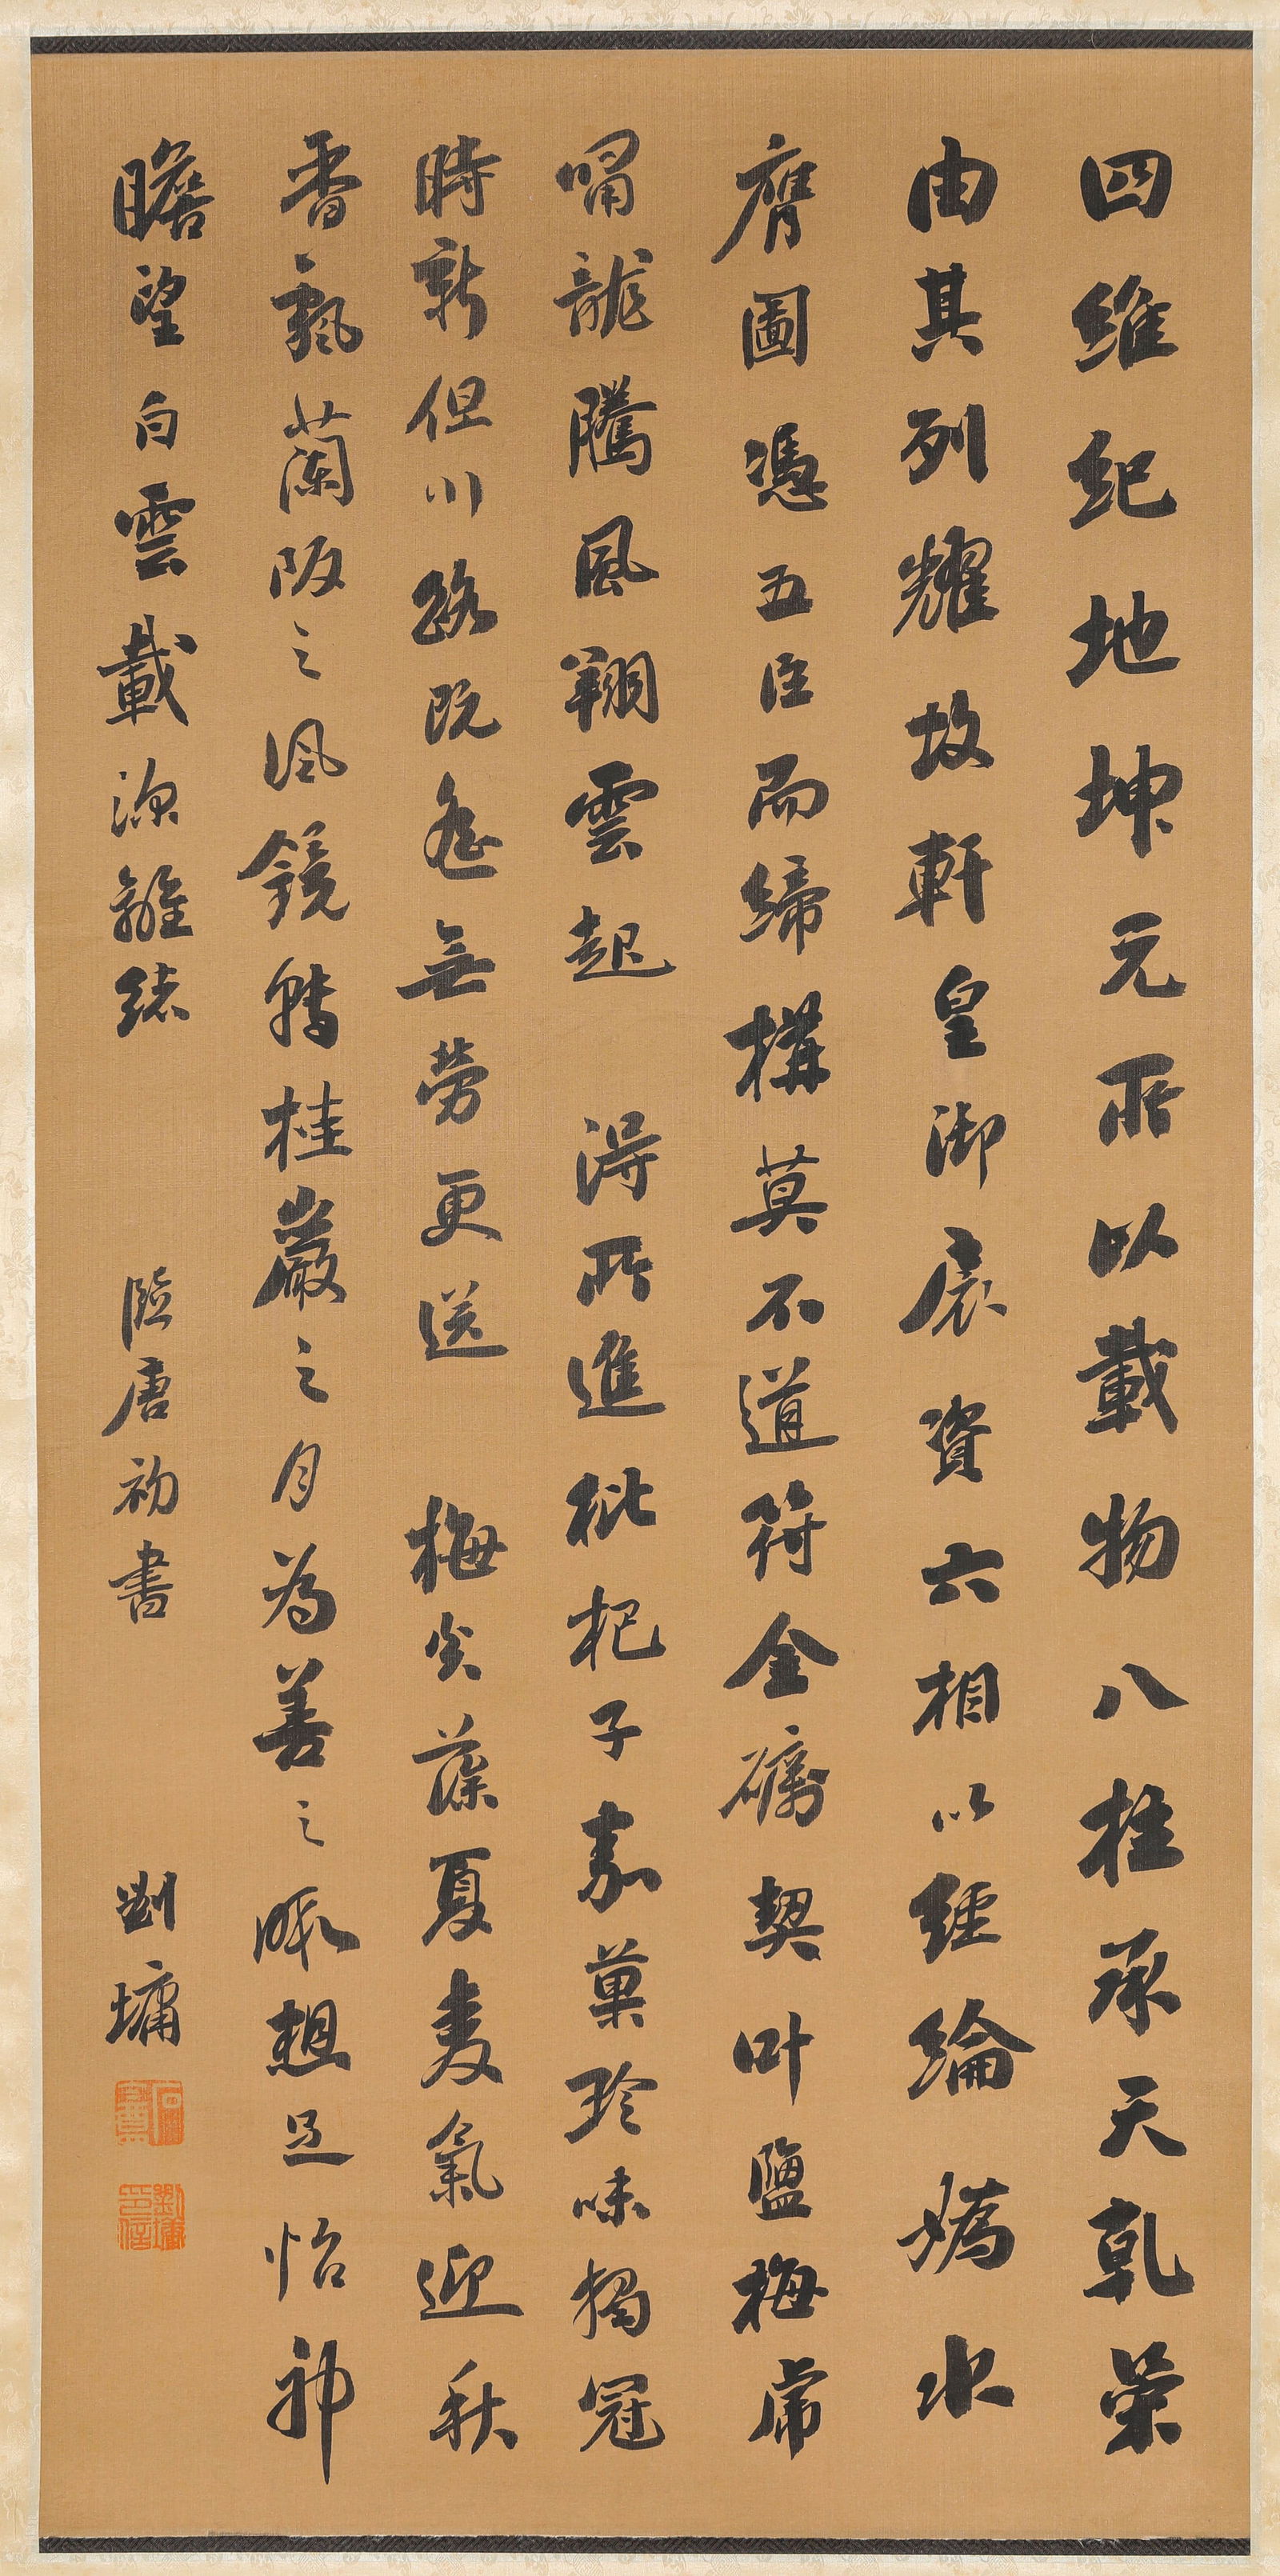 四維紀地坤元所以載物八柱承天乾象
由其列耀故軒皇御扆資六相以經綸媯水
膺圖憑五臣而締構莫不道符金礪契叶鹽梅席
嘯龍騰風翔雲起 得所進枇杷子嘉菓珍味獨冠
時新但川路既遙無勞更送 梅炎藻夏麥氣迎秋
香飄蘭阪之風鏡轉桂巖之月為善之暇想足怡神
瞻望白雲載深離緒 臨唐初書 劉墉
石庵
劉墉印信